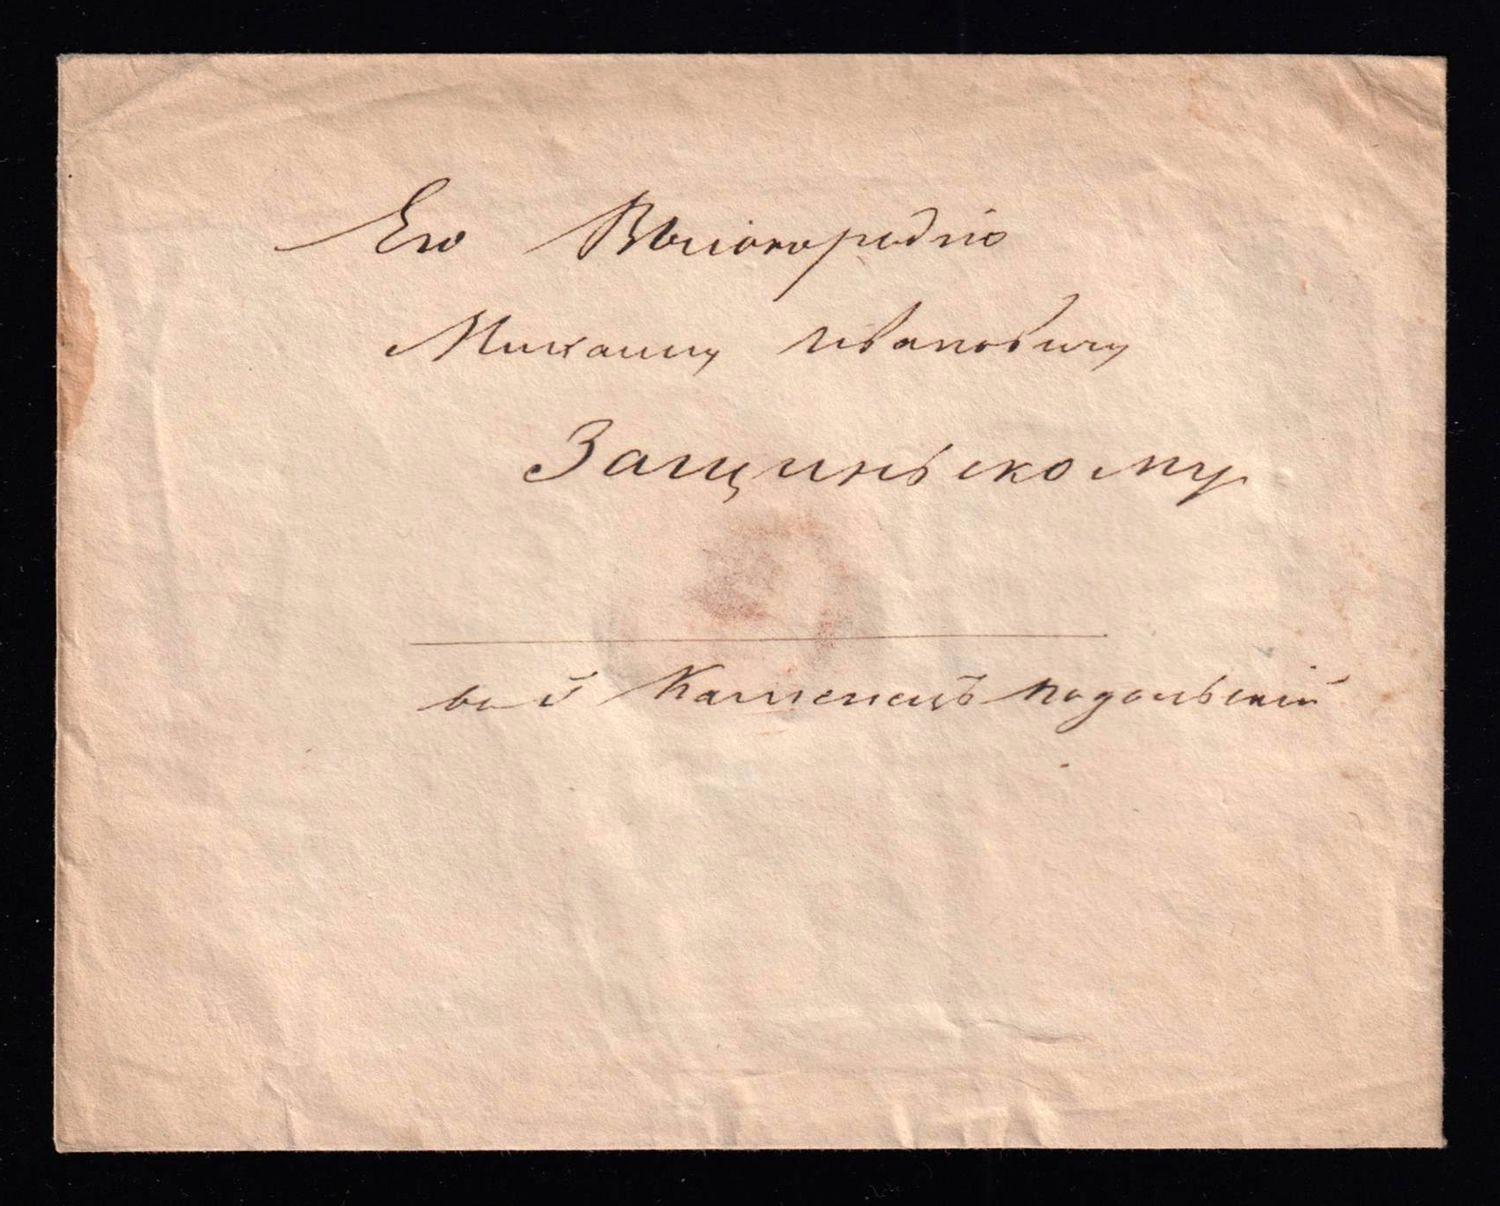 Его Высокородію
Михаилу Ивановичу
Защиньскому
Каменецъ Подольскій